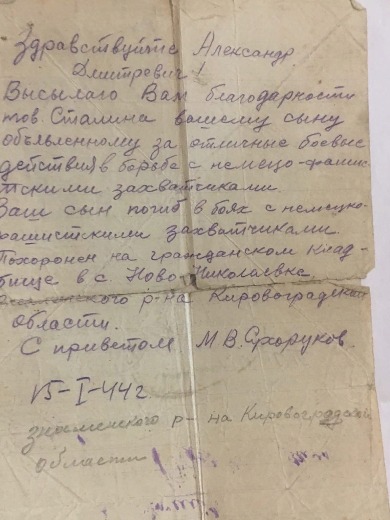 Здравствуйте Александр
Дмитревич!
Высылаю Вам благодарности
тов. Сталина вашему сыну
объявленному за отличные боевые
действия в борьбе с немецо-фашис-
тскими захватчиками.
Ваш сын погиб в боях с немецко-
фашистскими захватчиками.
Похоронен на гражданском клад-
бище в с Ново-Николаевке
р-на Кировоградской
области.
С приветом М В. Сухоруков.
15-I-44г.
знаменского р-на Кировоградской
области